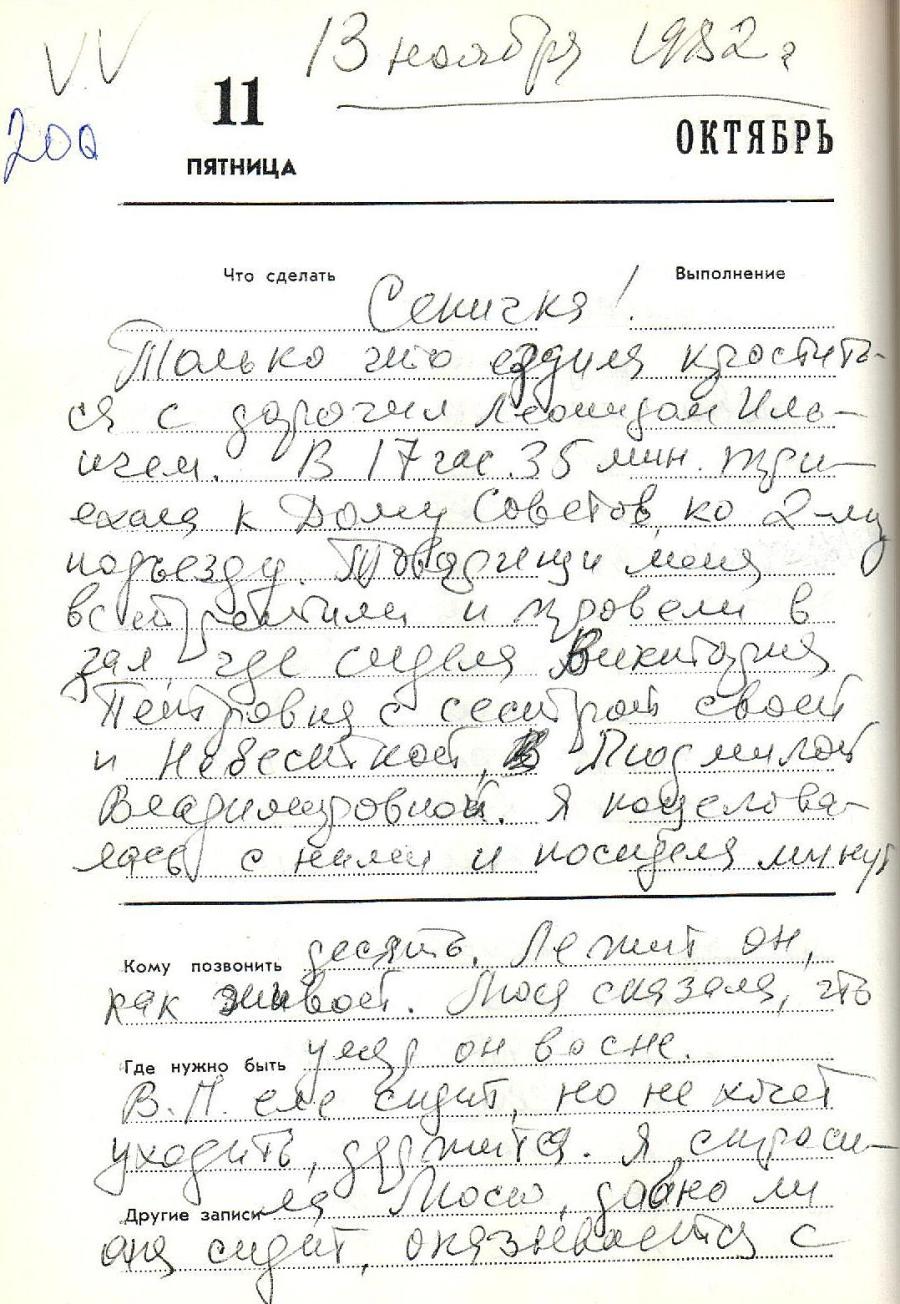 V.V 13 ноября 1982 г
200
11
ПЯТНИЦА
ОКТЯБРЬ
Что сделать Выполнение
Сеничка!
Только что ездила проститъ-
ся с дорогим Леонидом Иль-
ичем. В 17 час. 35 мин. при-
ехала к Дому Советов, ко 2-му
подъезду. Товарищи меня
встретили и провели в
зал, где сидела Виктория
Петровна с сестрой своей
и невесткой, Людмилой
Владимировной. Я поцелова-
лась с ними и посидела минут
Кому позвонить десять. Лежит он,
как живой. Люся сказала, что
Где нужно быть умер он во сне.
В.П. еле сидит, но не хочет
уходить, держится. Я спроси-
Другие записи ла Люсю, давно ли
она сидит, оказывается с